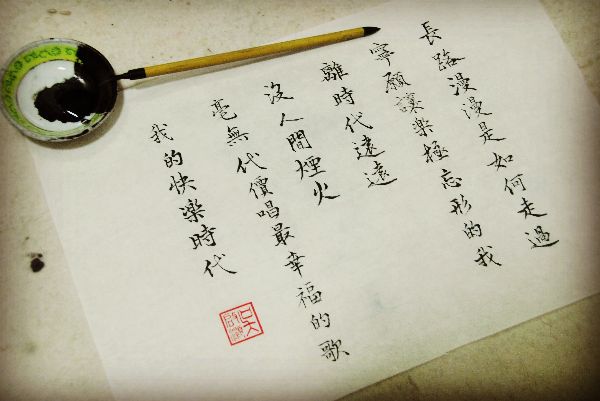 長路漫漫是如何走過
寧願讓樂極忘形的我
離時代遠遠
沒人間煙火
毫無代價唱最幸福的歌
我的快樂時代